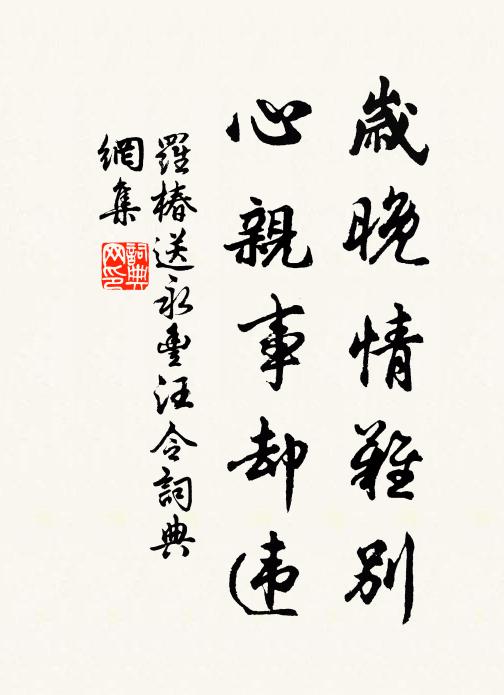 歲晚情難別
心親事却违
羅椿送永豊汪令詞典
網集
詞典
网印